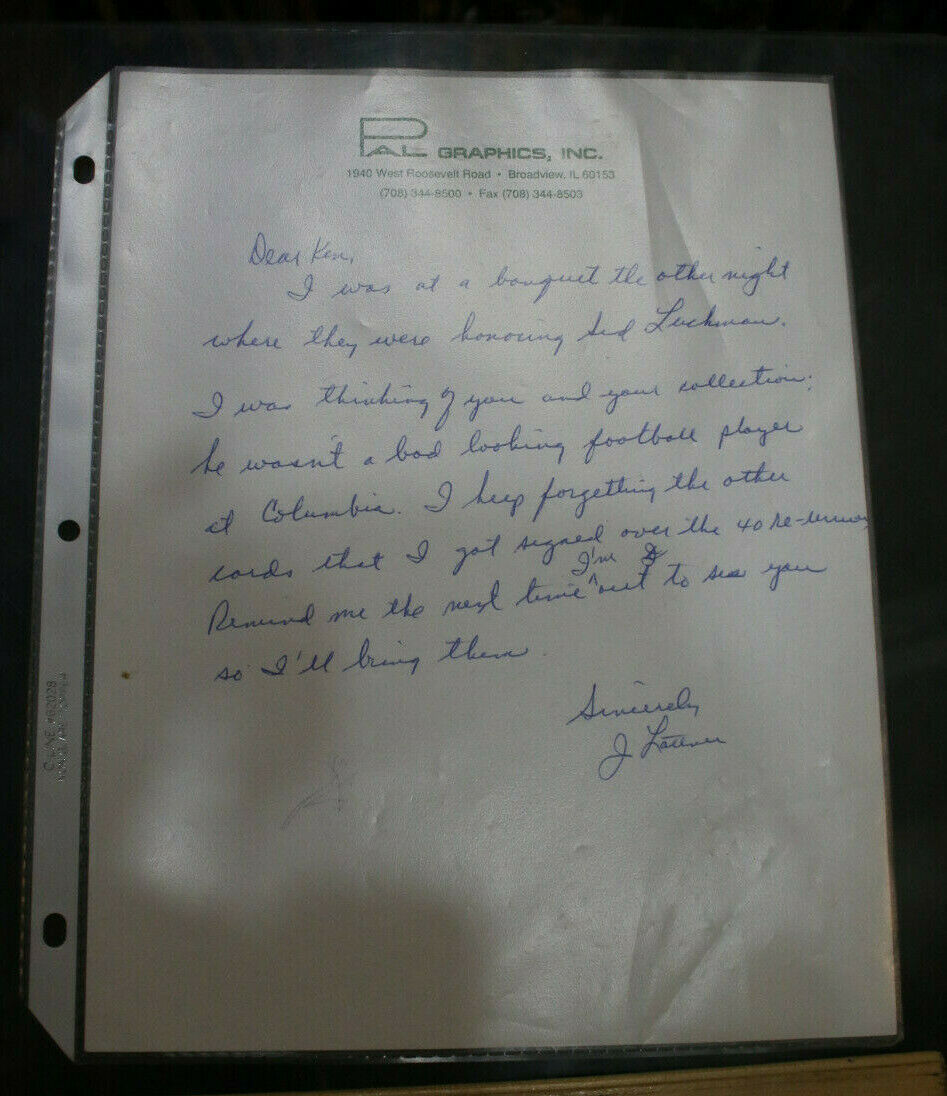 PAL GRAPHICS, INC.
1940 West Roosevelt Road • Broadview, IL 60153
(708) 344-8500 • Fax (708) 344-8503
Dear Ken,
I was at a banquet the other night
where they were honoring Sid Luckman.
I was thinking of you and your collection;
he wasn't a bad looking football player
at Columbia. I keep forgetting the other
cards that I got signed over the 40 re-union
Remind me the next time I'm out to see you
so I'll bring them.
Sincerely
J Lattner